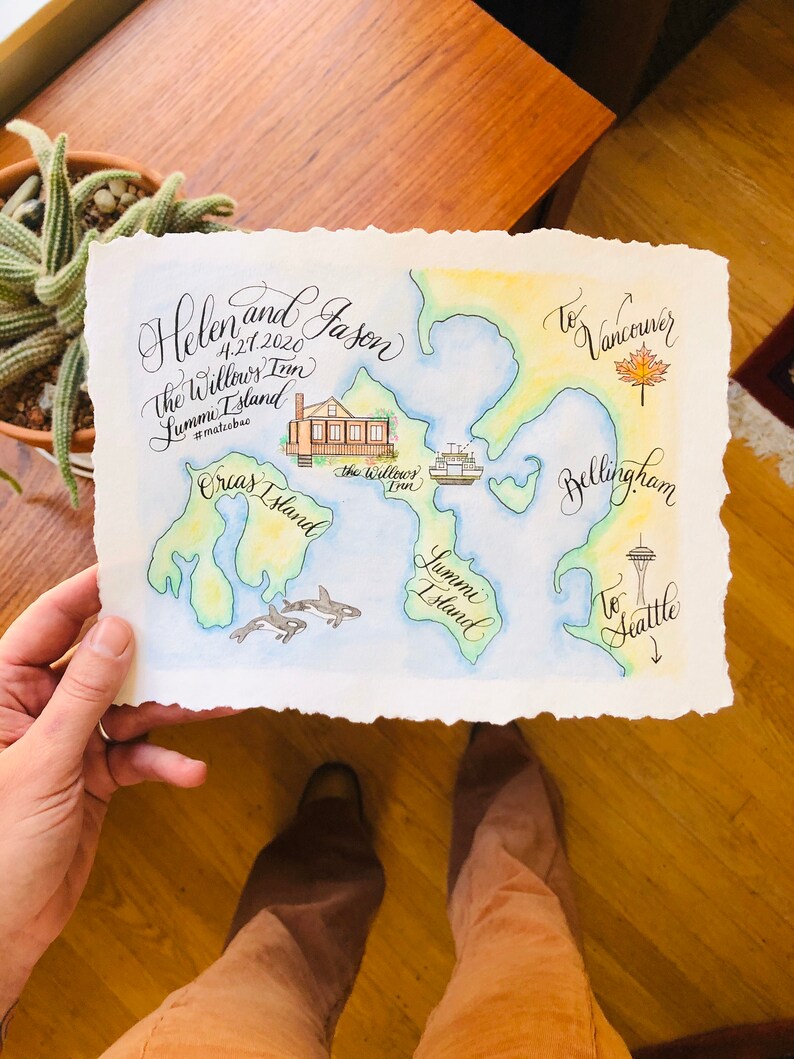 Helen and Jason
4.27.2020
The Willows Inn
Lummi Island
#matzobao
To
Vancouver
the Willows
Inn
Bellingham
Orcas Island
Lummi
Island
To
Seattle